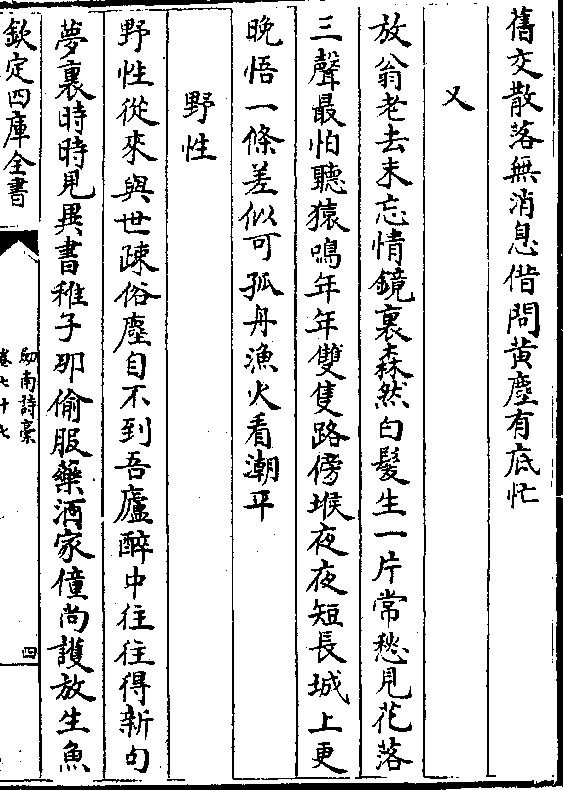 舊交散落無消息借問黄塵有底忙
又
放翁老去未忘情鏡裏森然白髮生一片常愁見花落
三聲最怕聽猿鳴年年雙隻路傍堠夜夜短長城上更
晚悟一條差似可孤舟漁火看潮平
野性
野性從來與世疎俗塵自不到吾廬醉中往往得新句
夢裏時時見異書稚子那偷服藥酒家僮尚護放生魚
欽定四庫全書
劒南詩稾
卷七十七
四